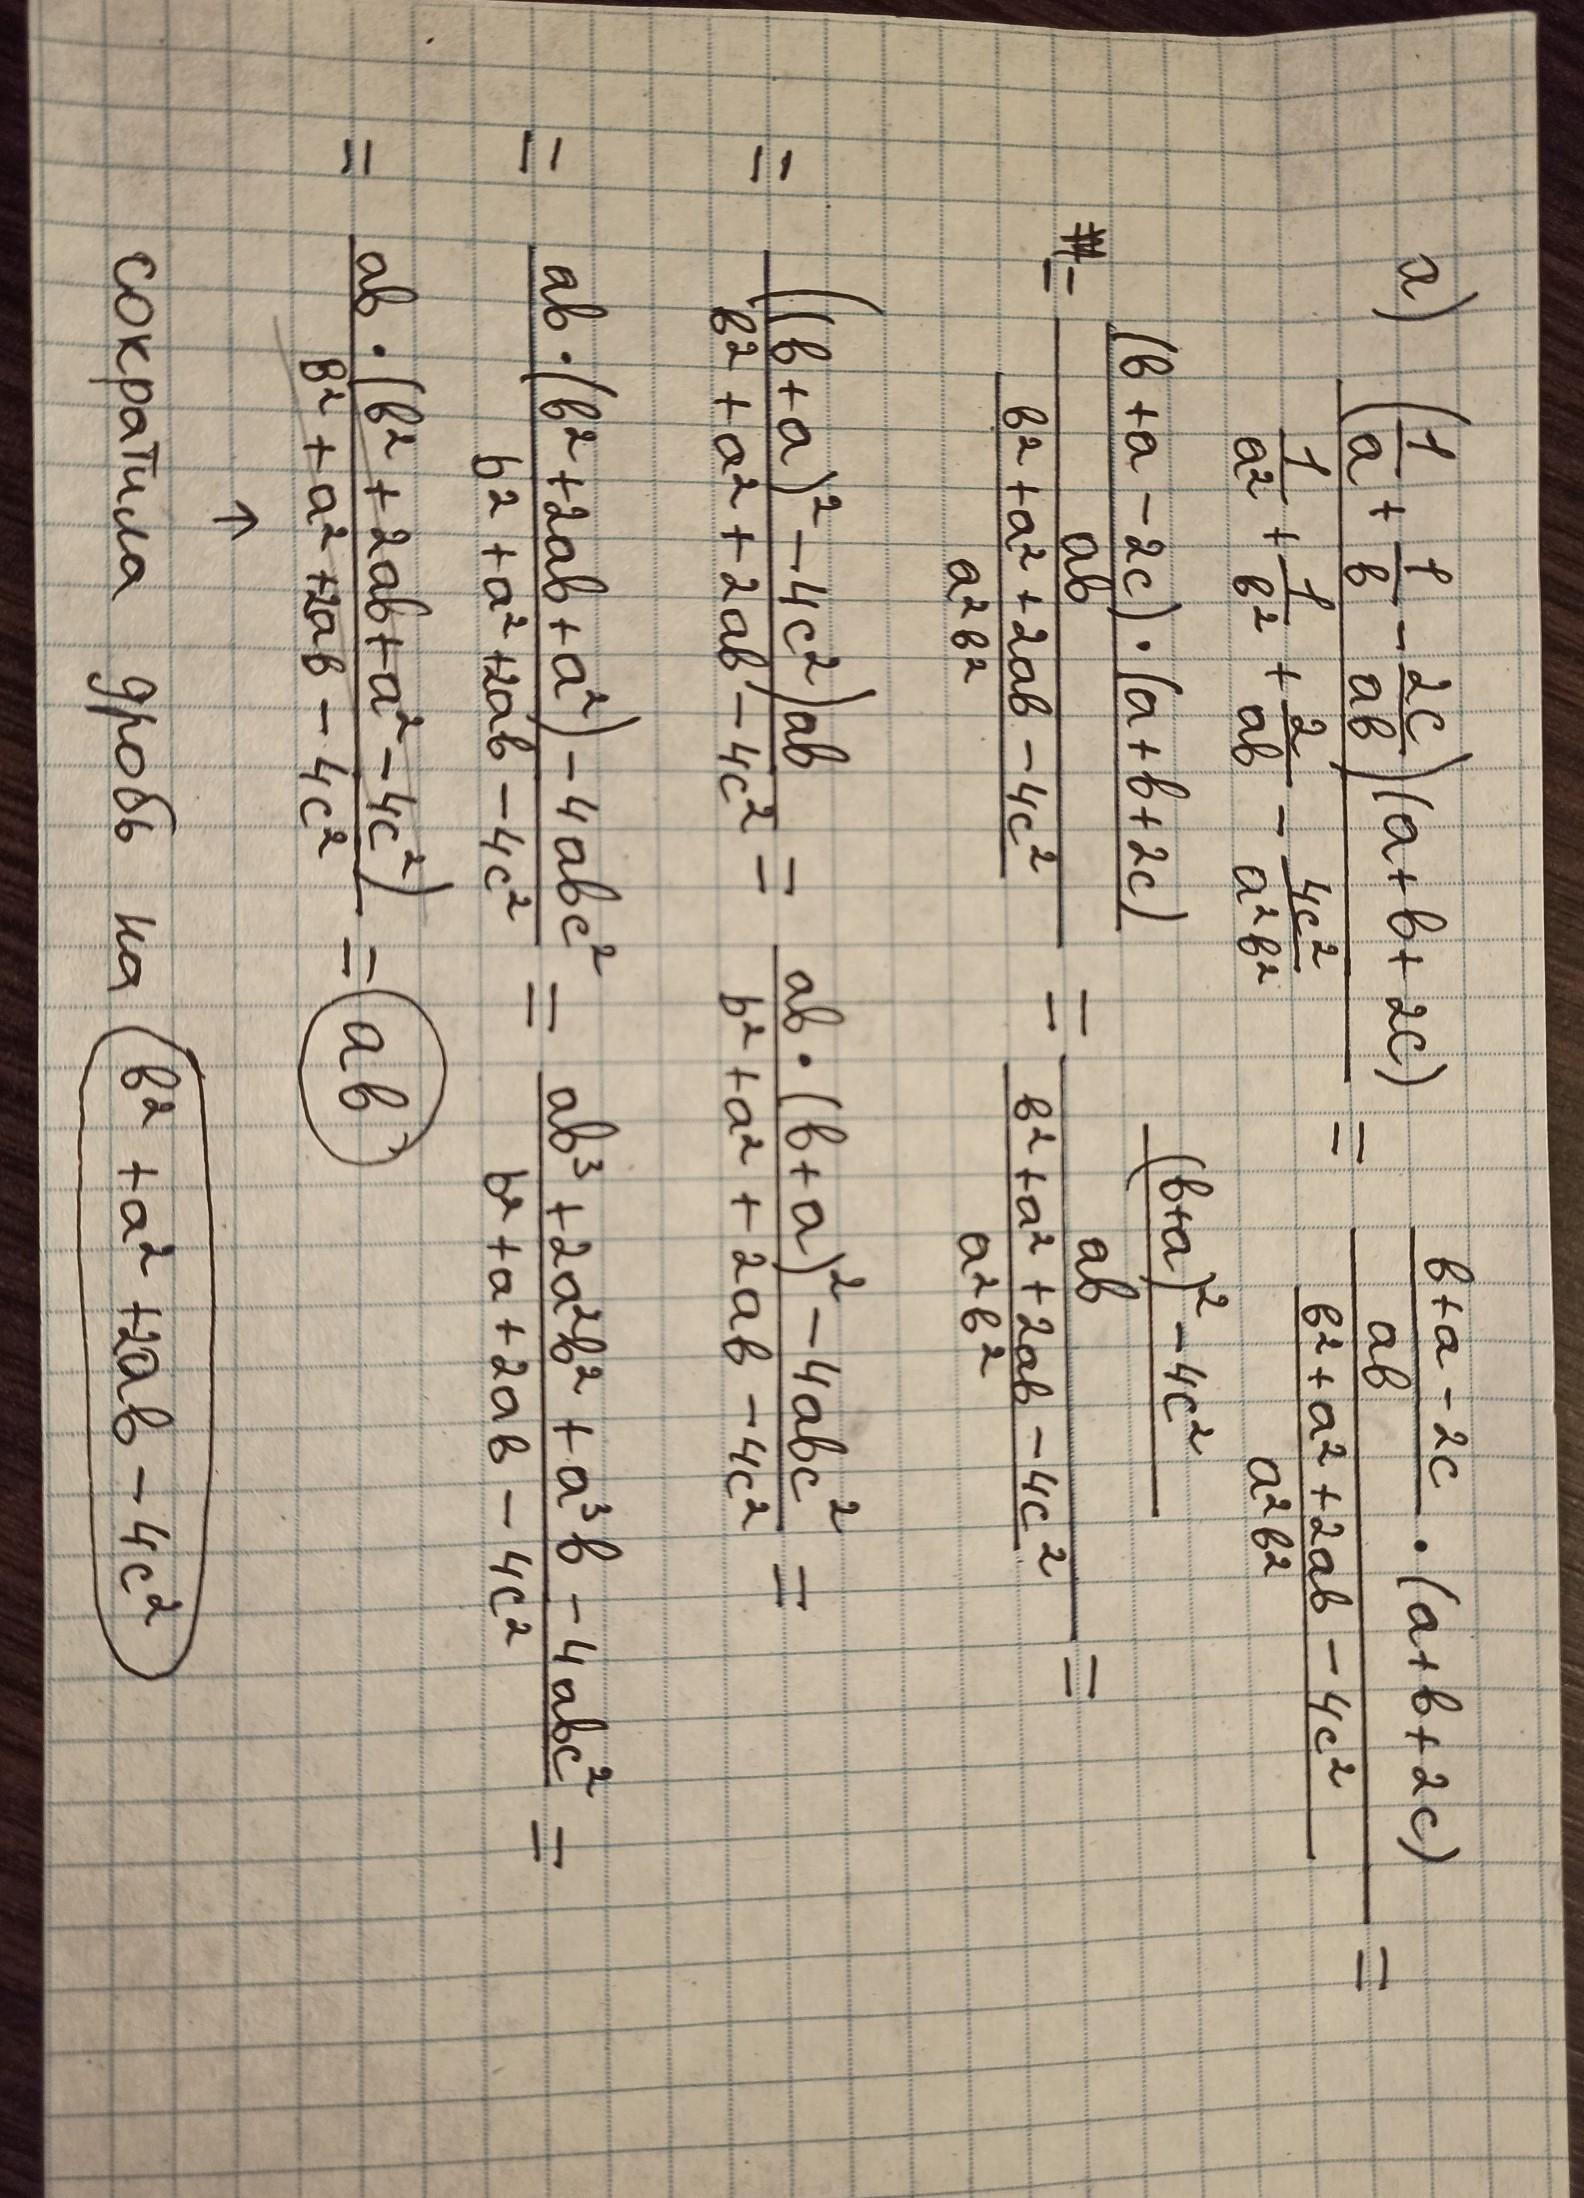 а) ((1/a + 1/b - 2c/ab)(a+b+2c)) / (1/a² + 1/b² + 2/ab - 4c²/a²b²) = ((b+a-2c)/ab · (a+b+2c)) / ((b²+a²+2ab-4c²)/a²b²) =
= ((b+a-2c)·(a+b+2c)/ab) / ((b²+a²+2ab-4c²)/a²b²) = (((b+a)²-4c²)/ab) / ((b²+a²+2ab-4c²)/a²b²) =
= ((b+a)²-4c²)ab / (b²+a²+2ab-4c²) = (ab·(b+a)²-4abc²) / (b²+a²+2ab-4c²) =
= (ab·(b²+2ab+a²)-4abc²) / (b²+a²+2ab-4c²) = (ab³+2a²b²+a³b-4abc²) / (b²+a+2ab-4c²) =
= ab·(b²+2ab+a²-4c²) / (b²+a²+2ab-4c²) = ab
↑
сократила дробь на (b²+a²+2ab-4c²)